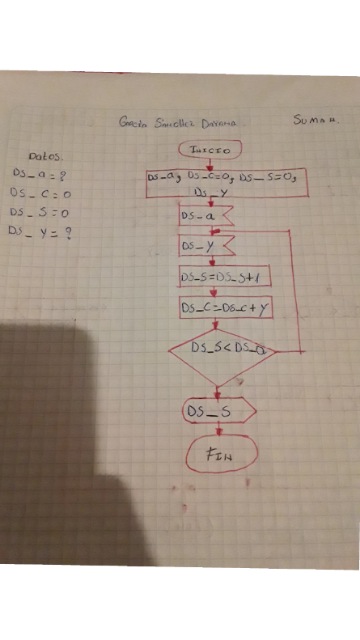 García Sánchez Dayana. SUMAR.
Datos.
DS_a = ?
DS_C = 0
DS_S = 0
DS_Y = ?
INICIO
DS_a, DS_C=0, DS_S=0,
DS_Y
DS_a
DS_Y
DS_S=DS_S+1
DS_C=DS_C+Y
DS_S<DS_a
DS_S
FIN